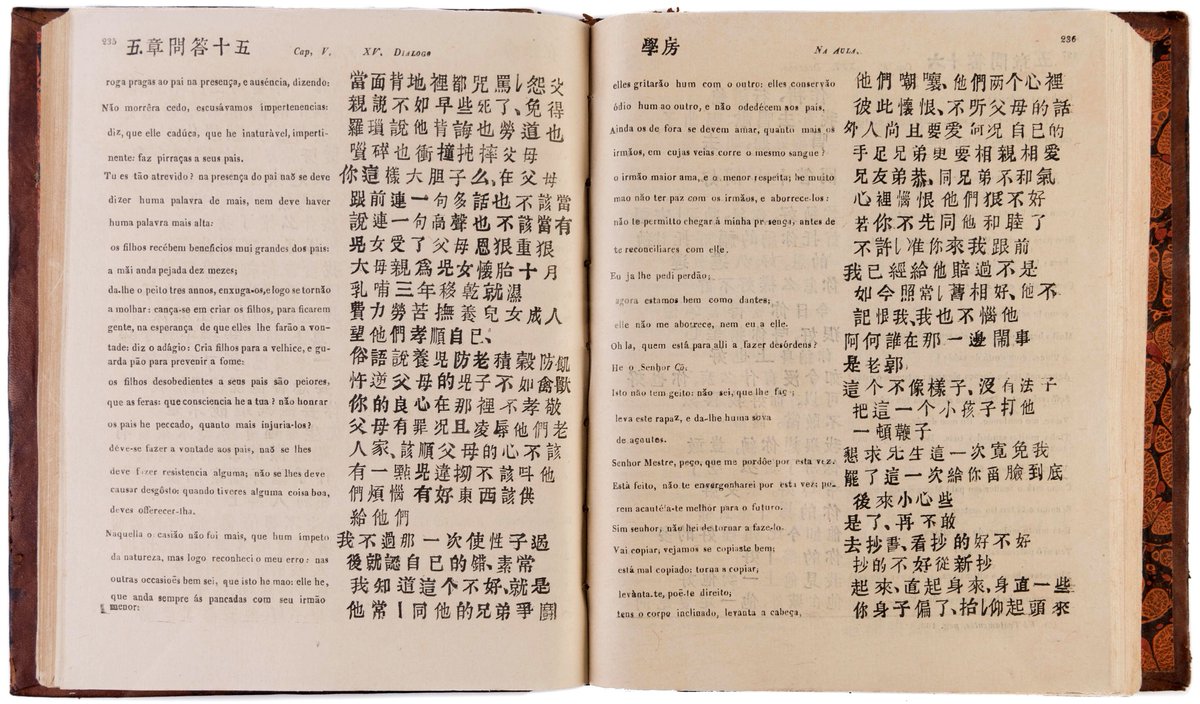 235
五章問答十五
Cap, V. XV. DIALOGO
roga pragas ao pai na presença, e auséncia, dizendo:
Não morrêra cedo, escusávamos impertenencias:
diz, que elle cadúca, que he inaturável, imperti-
nente: faz pirraças a seus pais.
Tu es tão atrevido? na presença do pai naõ se deve
dizer huma palavra de mais, nem deve haver
huma palavra mais alta:
os filhos recébem beneficios mui grandes dos pais:
a mãi anda pejada dez mezes;
da-lhe o peito tres annos, enxuga-os, e logo se tornão
a molhar: cança-se em criar os filhos, para ficarem
gente, na esperança de que elles lhe farão a von-
tade: diz o adágio: Cria filhos para a velhice, e gu-
arda pão para prevenir a fome:
os filhos desobedientes a seus pais são peiores,
que as feras: que consciencia he a tua? não honrar
os pais he peccado, quanto mais injuria-los?
déve-se fazer a vontade aos pais, naõ se lhes
deve fazer resistencia alguma; não se lhes deve
causar desgôsto: quando tiveres alguma coisa boa,
deves offerecer-lha.
Naquella o casião não foi mais, que hum ímpeto
da natureza, mas logo reconheci o meu erro: nas
outras occasioẽs bem sei, que isto he mao: elle he,
que anda sempre ás pancadas com seu irmão
menor:
當面背地裡都咒罵㇑怨父
親說不如早些死了、免得
羅𤨏說他背誨也勞道也
嘳碎也衝撞扽摔父母
你這樣大胆子么、在父母
跟前連一句多話也不該當
說連一句高聲也不該當有
兒女受了父母恩狠重狠
大母親爲兒女懷胎十月
乳哺三年移乾就濕
費力勞苦撫養兒女成人
望他們孝順自已、
俗語說養兒防老積穀防飢
忤逆父母的兒子不如禽獸
你的良心在那裡不孝敬
父母有罪况且凌辱他們老
人家、該順父母的心不該
有一㸃兒違拗不該呌他
們煩惱有好東西該供
給他們
我不過那一次使性子過
後就認自已的錯、素常
我知道這个不好、就是
他常㇑同他的兄弟爭鬪
學房
NA AULA.
236
elles gritarão hum com o outro: elles conservão
ódio hum ao outro, e não odedécem aos pais,
Ainda os de fora se devem amar, quanto mais os
irmãos, em cujas veias corre o mesmo sangue?
o irmão maior ama, e o menor respeita; he muito
mao não ter paz com os irmãos, e aborrece-los:
não te permitto chegar á minha presença, antes de
te reconciliares com elle.
Eu ja lhe pedi perdão;
agora estamos bem como dantes;
elle não me aborrece, nem eu a elle.
Oh la, quem está para alli a fazer desórdens?
He o Senhor Cō.
Isto não tem geito: não sei, que lhe faça;
leva este rapaz, e da-lhe huma sova
de açoutes.
Senhor Mestre, peço, que me perdõe por esta vez.
Está feito, não te envergonharei por esta vez; po-
rem acautéla-te melhor para o futuro.
Sim senhor; não hei de tornar a faze-lo.
Vai copiar, vejamos se copiaste bem;
está mal copiado: torna a copiar;
levànta-te, poẽ-te direito;
tens o corpo inclinado, levanta a cabeça,
他們嘲嚷、他們两个心裡
彼此懷恨、不所父母的話
外人尚且要愛何况自已的
手足兄弟更要相親相愛
兄友弟恭、同兄弟不和氣
心裡惱恨他們狠不好
若你不先同他和睦了
不許㇑准你來我跟前
我已經給他賠過不是
如今照常㇑舊相好、他不
記恨我、我也不惱他
阿何誰在那一邊鬧事
是老郭
這个不像樣子、沒有法子
把這一个小孩子打他
一頓鞭子
懇求先生這一次寬免我
罷了這一次給你畱臉到底
後來小心些
是了、再不敢
去抄書、看抄的好不好
抄的不好從新抄
起來、直起身來、身直一些
你身子偏了、抬㇑仰起頭來